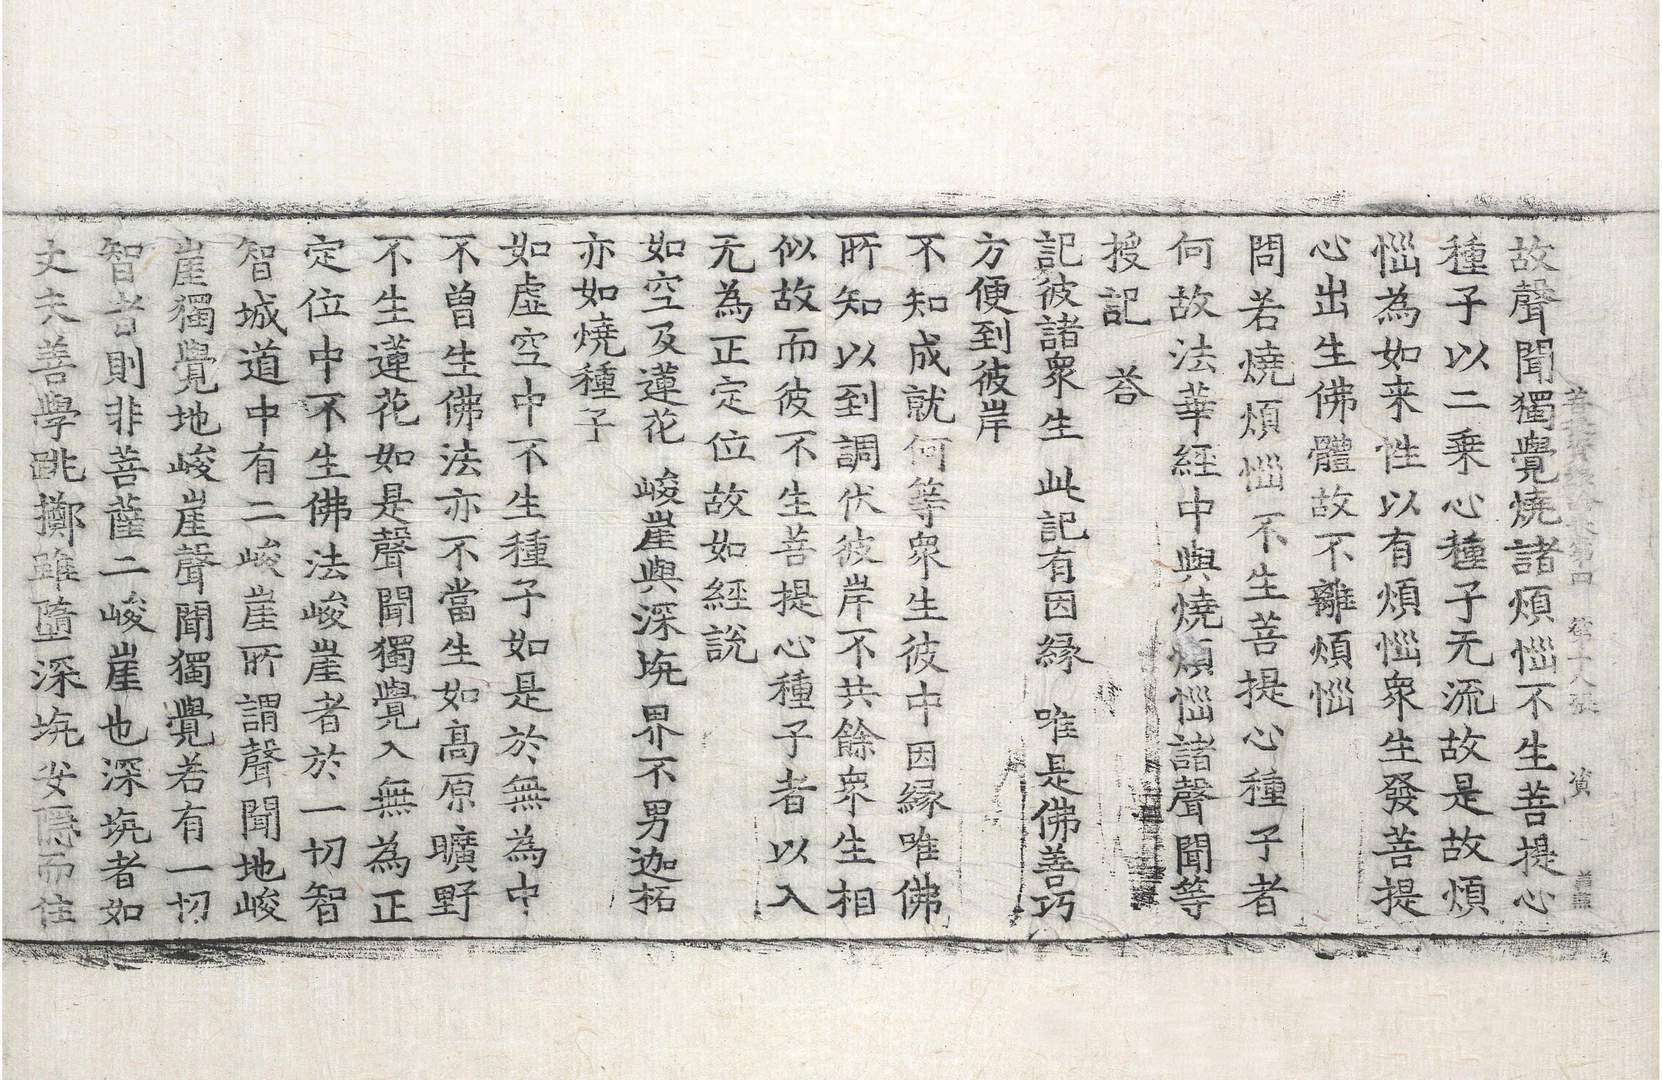 菩提資粮論卷第四 第六張 賓
故聲聞獨覺燒諸煩惱不生菩提心
種子以二乗心種子无流故是故煩
惱為如来性以有煩惱衆生發菩提
心出生佛體故不離煩惱
問若燒煩惱不生菩提心種子者
何故法華經中與燒煩惱諸聲聞等
授記 荅
記彼諸衆生 此記有因縁 唯是佛善巧
方便到彼岸
不知成就何等衆生彼中因縁唯佛
所知以到調伏彼岸不共餘衆生相
似故而彼不生菩提心種子者以入
无為正定位故如經說
如空及蓮花 峻崖與深坑 界不男迦柘
亦如燒種子
如虛空中不生種子如是於無為中
不曾生佛法亦不當生如髙原曠野
不生蓮花如是聲聞獨覺入無為正
定位中不生佛法峻崖者於一切智
智城道中有二峻崖所謂聲聞地峻
崖獨覺地峻崖聲聞獨覺若有一切
智者則非菩薩二峻崖也深坑者如
丈夫善學跳擲雖墮深坑安隱而住